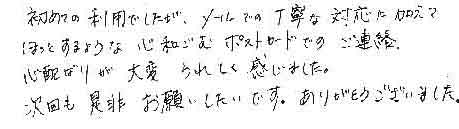 初めての利用でしたが、メールでの丁寧な対応に加えて
ほっとするような心和ごむポストカードでのご連絡、
心配りが大変うれしく感じました。
次回も是非お願いしたいです。ありがとうございました。